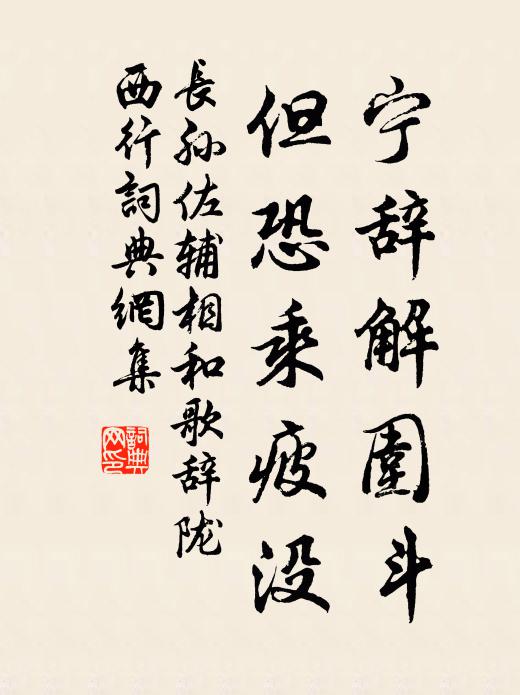 宁辞解围斗
但恐乘疲没
長孙佐辅相和歌辞陇
西行詞典網集
詞典
网印